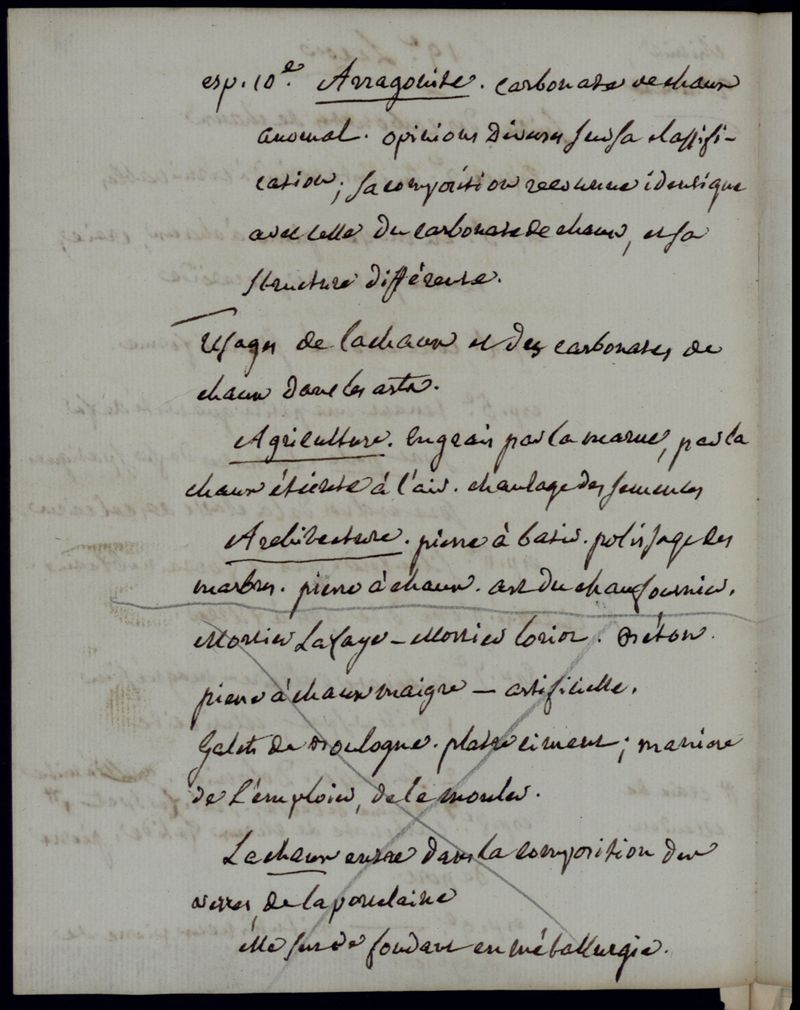 esp. 10e. Arragonite. carbonate de chaux
anomal. opinions diverses sur sa classifi-
cation; sa composition reconnue identique
avec celle du carbonate de chaux, et sa
structure différente.
Usages de la chaux et des carbonates de
chaux dans les arts.
Agriculture. Engrais par la marne, par la
chaux éteinte à l'air. chaulage des semences
Architecture. pierre à batir. polissage des
marbres. pierre à chaux. art du chaufournier.
Mortier Lafaye - Mortier loriot. Béton.
pierre à chaux maigre - artificielle.
Galets de Boulogne. platre ciment; maniere
de l'emploier, de le mouler.
La chaux entre dans la composition du
verre, de la porcelaine
elle sert de fondant en métallurgie.